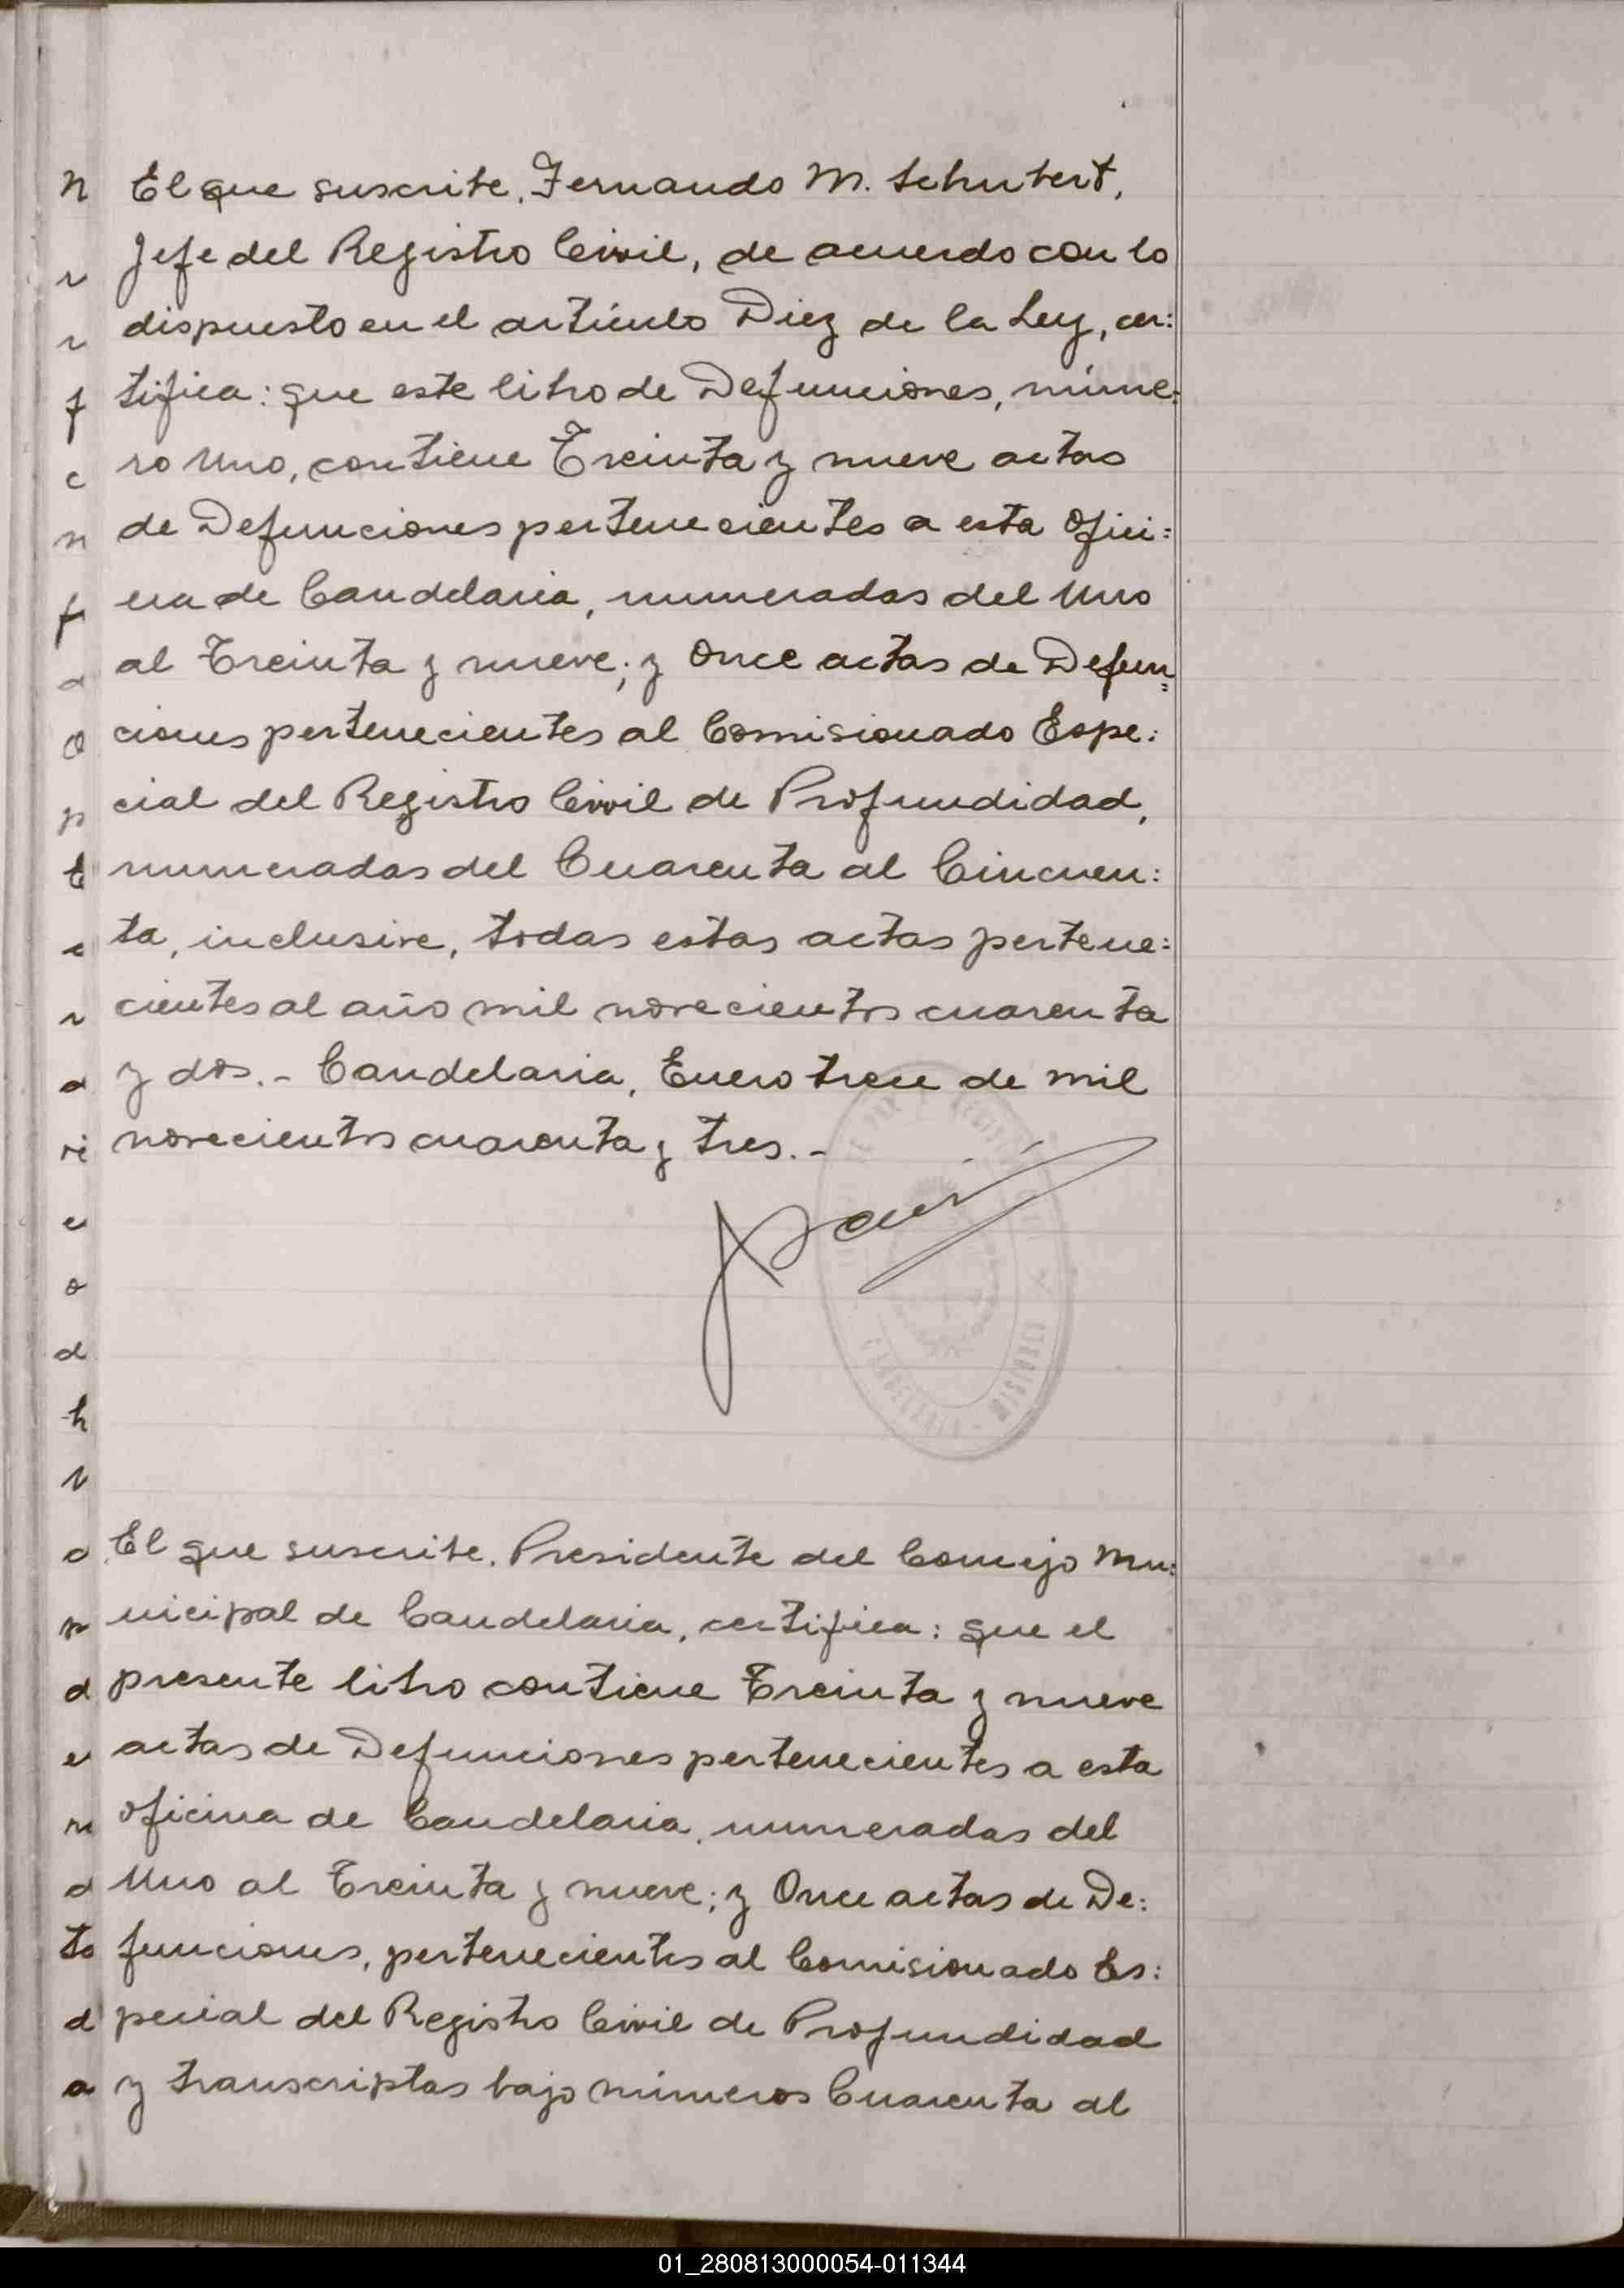 El que suscribe, Fernando M. Schubert,
Jefe del Registro Civil, de acuerdo con lo
dispuesto en el artículo Diez de la Ley, cer:
tifica: que este libro de Defunciones, núme:
ro Uno, contiene Treinta y nueve actas
de Defunciones pertenecientes a esta Ofici:
na de Candelaria, numeradas del Uno
al Treinta y nueve; y Once actas de Defun=
ciones pertenecientes al Comisionado Espe:
cial del Registro Civil de Profundidad,
numeradas del Cuarenta al Cincuen:
ta, inclusive, todas estas actas pertene:
cientes al año mil novecientos cuarenta
y dos.- Candelaria, Enero trece de mil
novecientos cuarenta y tres.-
CANDELARIA - MISIONES
El que suscribe. Presidente del Concejo Mu:
nicipal de Candelaria, certifica: que el
presente libro contiene Treinta y nueve
actas de Defunciones pertenecientes a esta
Oficina de Candelaria, numeradas del
Uno al Treinta y nueve; y Once actas de De:
funciones, pertenecientes al Comisionado Es:
pecial del Registro Civil de Profundidad
y transcriptas bajo números Cuarenta al
01_280813000054-011344